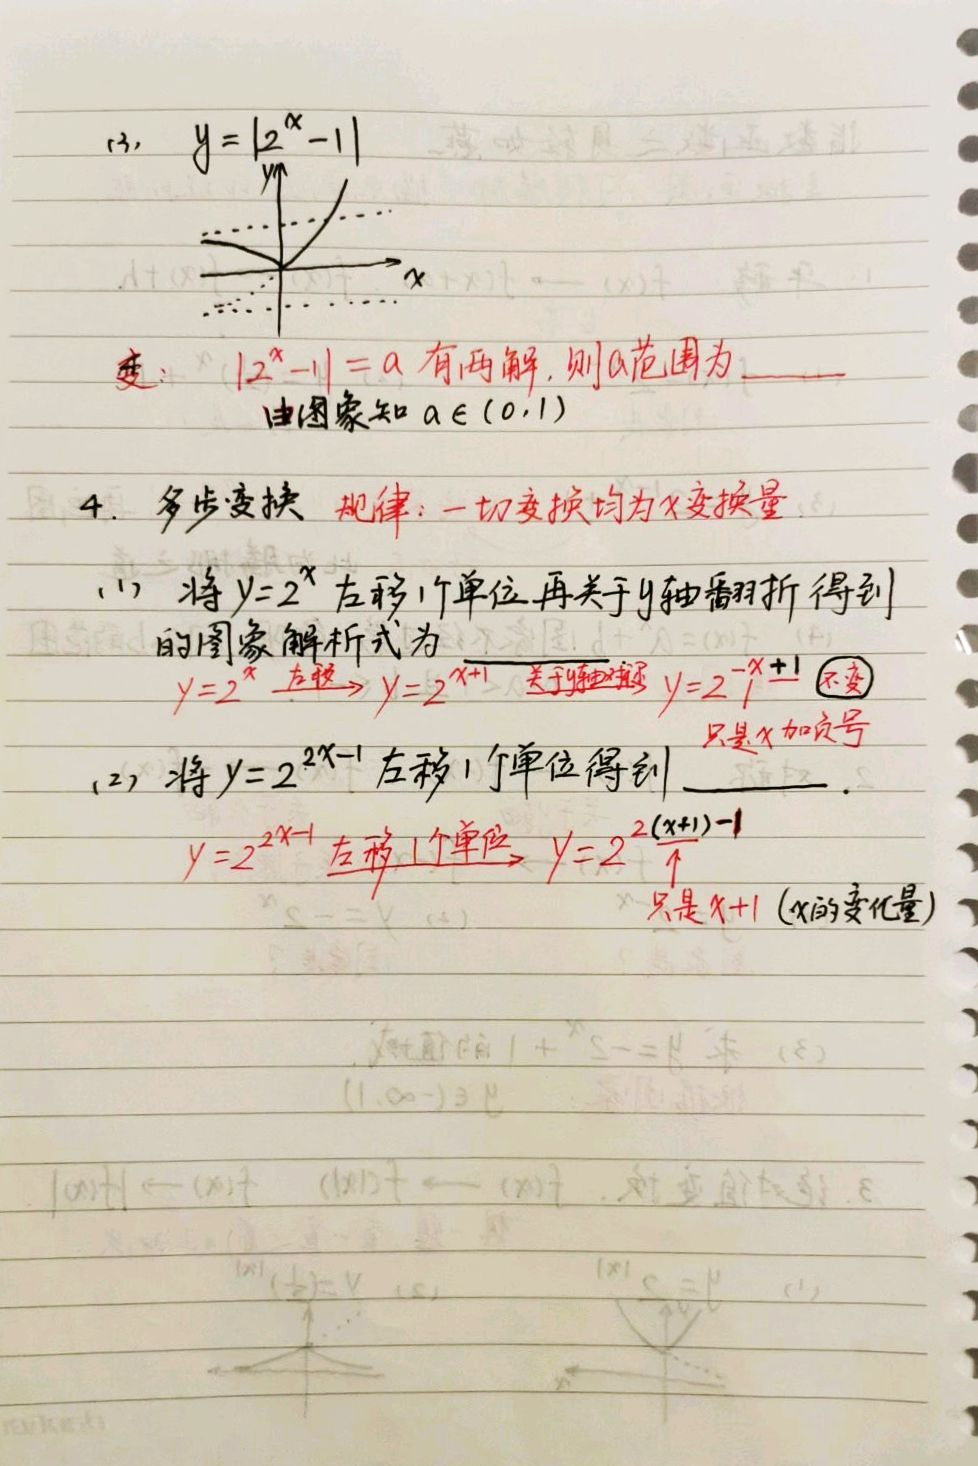 (3) y=|2^x-1|
y
x
变: |2^x-1|=a 有两解,则a范围为______
由图象知 a∈(0,1)
4. 多步变换 规律:一切变换均为x变换量.
(1) 将y=2^x 左移1个单位再关于y轴翻折得到
的图象解析式为______
y=2^x 左移→ y=2^{x+1} 关于y轴对称 y=2^{-x+1} 不变
只是x加负号
(2) 将y=2^{2x-1} 左移1个单位得到______.
y=2^{2x-1} 左移1个单位→ y=2^{2(x+1)-1}
只是x+1 (x的变化量)